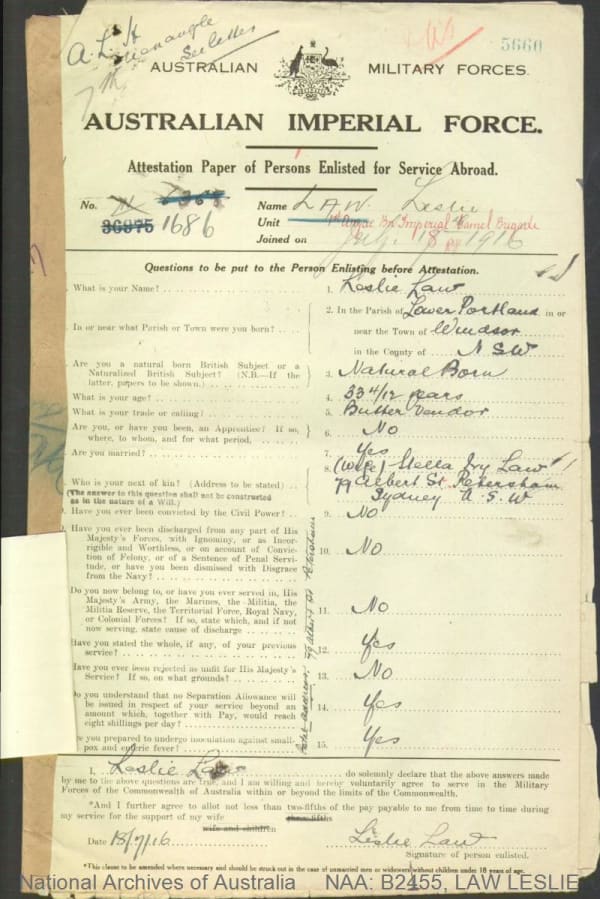 A.L.H
See letter
5660
AUSTRALIAN MILITARY FORCES.
AUSTRALIAN IMPERIAL FORCE.
Attestation Paper of Persons Enlisted for Service Abroad.
No. 36975 1686
Name LAW Leslie
Unit Imperial Camel Brigade
Joined on July 18 1916
Questions to be put to the Person Enlisting before Attestation.
. What is your Name? ....
1. Leslie Law
. In or near what Parish or Town were you born? ....
2. In the Parish of Lower Portland in or
near the Town of Windsor
in the County of N S W
. Are you a natural born British Subject or a
Naturalized British Subject? (N.B.—If the
latter, papers to be shown.) ....
3. Natural Born
. What is your age? ....
4. 33 4/12 years
. What is your trade or calling? ....
5. Butter Vendor
. Are you, or have you been, an Apprentice? If so,
where, to whom, and for what period. ....
6. No
. Are you married? ....
7. Yes
. Who is your next of kin? (Address to be stated)
(The answer to this question shall not be constructed
as in the nature of a Will.)
8. (Wife) Stella Ivy Law
79 Albert St. Petersham
Sydney N.S.W
. Have you ever been convicted by the Civil Power? .
9. No
. Have you ever been discharged from any part of His
Majesty's Forces, with Ignominy, or as Incor-
rigible and Worthless, or on account of Convic-
tion of Felony, or of a Sentence of Penal Servi-
tude, or have you been dismissed with Disgrace
from the Navy? ....
10. No
Do you now belong to, or have you ever served in, His
Majesty's Army, the Marines, the Militia, the
Militia Reserve, the Territorial Force, Royal Navy,
or Colonial Forces? If so, state which, and if not
now serving, state cause of discharge ....
11. No
Have you stated the whole, if any, of your previous
service? ....
12. Yes
Have you ever been rejected as unfit for His Majesty's
Service? If so, on what grounds? ....
13. No
Do you understand that no Separation Allowance will
be issued in respect of your service beyond an
amount which, together with Pay, would reach
eight shillings per day? ....
14. Yes
Are you prepared to undergo inoculation against small-
pox and enteric fever? ....
15. Yes
address, 79 Albert St Petersham
I, Leslie Law do solemnly declare that the above answers made
by me to the above questions are true, and I am willing and hereby voluntarily agree to serve in the Military
Forces of the Commonwealth of Australia within or beyond the limits of the Commonwealth.
*And I further agree to allot not less than two-fifths of the pay payable to me from time to time during
my service for the support of my wife three-fifths
wife and children
Date 18/7/16 Leslie Law
Signature of person enlisted.
*This clause to be amended where necessary and should be struck out in the case of unmarried men or widowers without children under 18 years of age.
National Archives of Australia NAA: B2455, LAW LESLIE